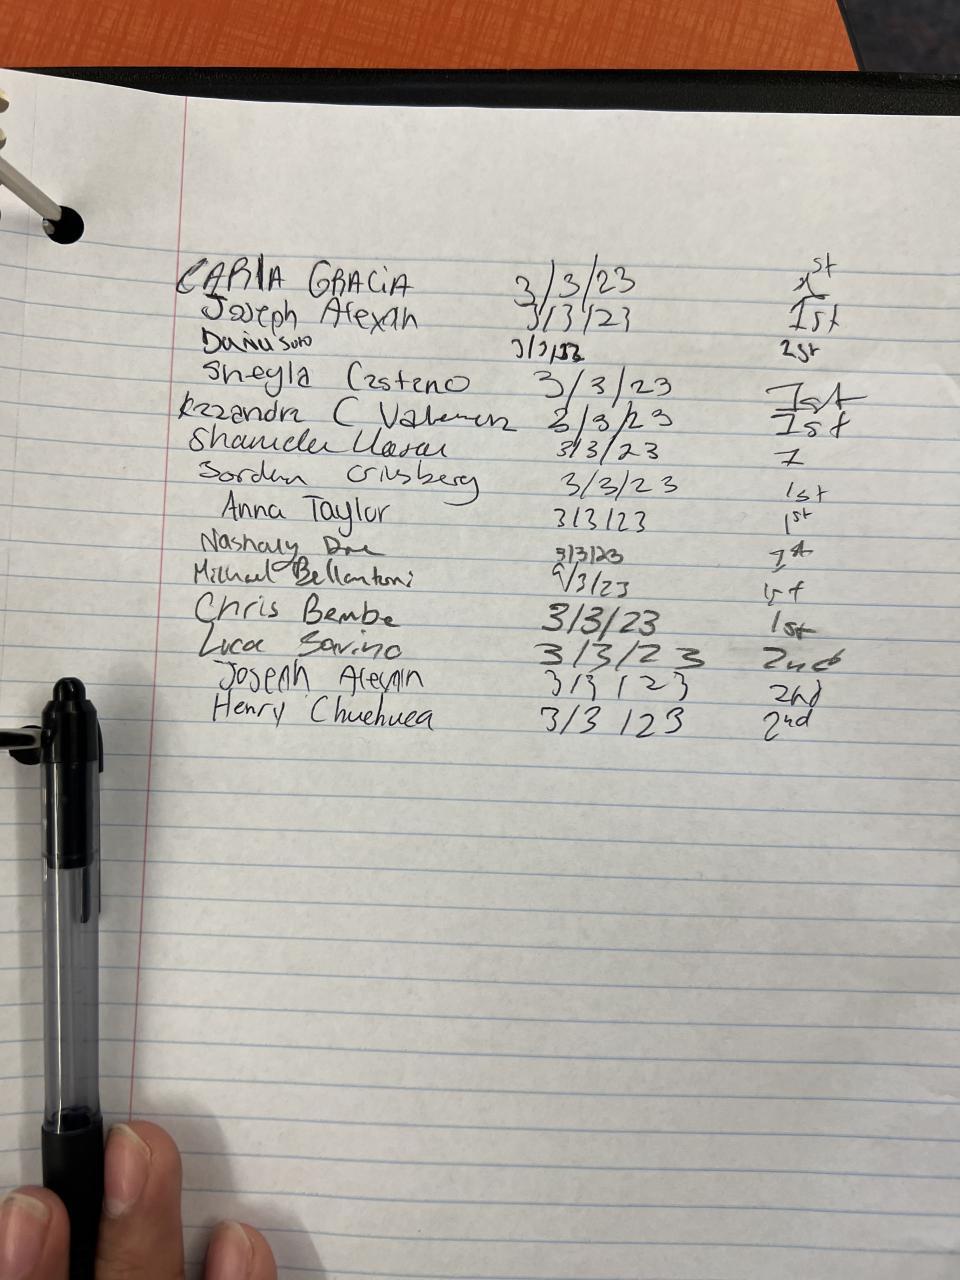 CARLA GRACIA 3/3/23 1st
Joseph Atexan 3/3/23 1st
Soto 3/3/23 1st
Sheyla Casteno 3/3/23 1st
Kazandra C 3/3/23 1st
3/3/23 1
Jordan 3/3/23 1st
Anna Taylor 3/3/23 1st
Nashaly 3/3/23 1st
Michael Bellantoni 3/3/23 1st
Chris Bembe 3/3/23 1st
Luca Savino 3/3/23 2nd
Joseph Atexan 3/3/23 2nd
Henry Chuehuea 3/3/23 2nd